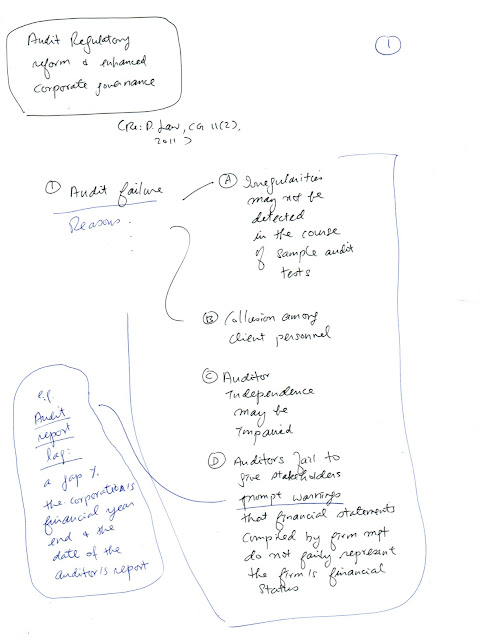 Audit Regulatory
reform & enhanced
corporate governance
1
(Re: D. Law, CG 11(2),
2011)
① Audit failure
Reasons:
Ⓐ Irregularities
may not be
detected
in the course
of sample audit
tests
Ⓑ Collusion among
client personnel
Ⓒ Auditor
Independence
may be
Impaired
Ⓓ Auditors fail to
give stakeholders
prompt warnings
that financial statements
compiled by firm mgt
do not fairly represent
the firm's financial
status
e.g.
Audit
report
lag:
a gap
the corporation's
financial year
end & the
date of the
auditor's report